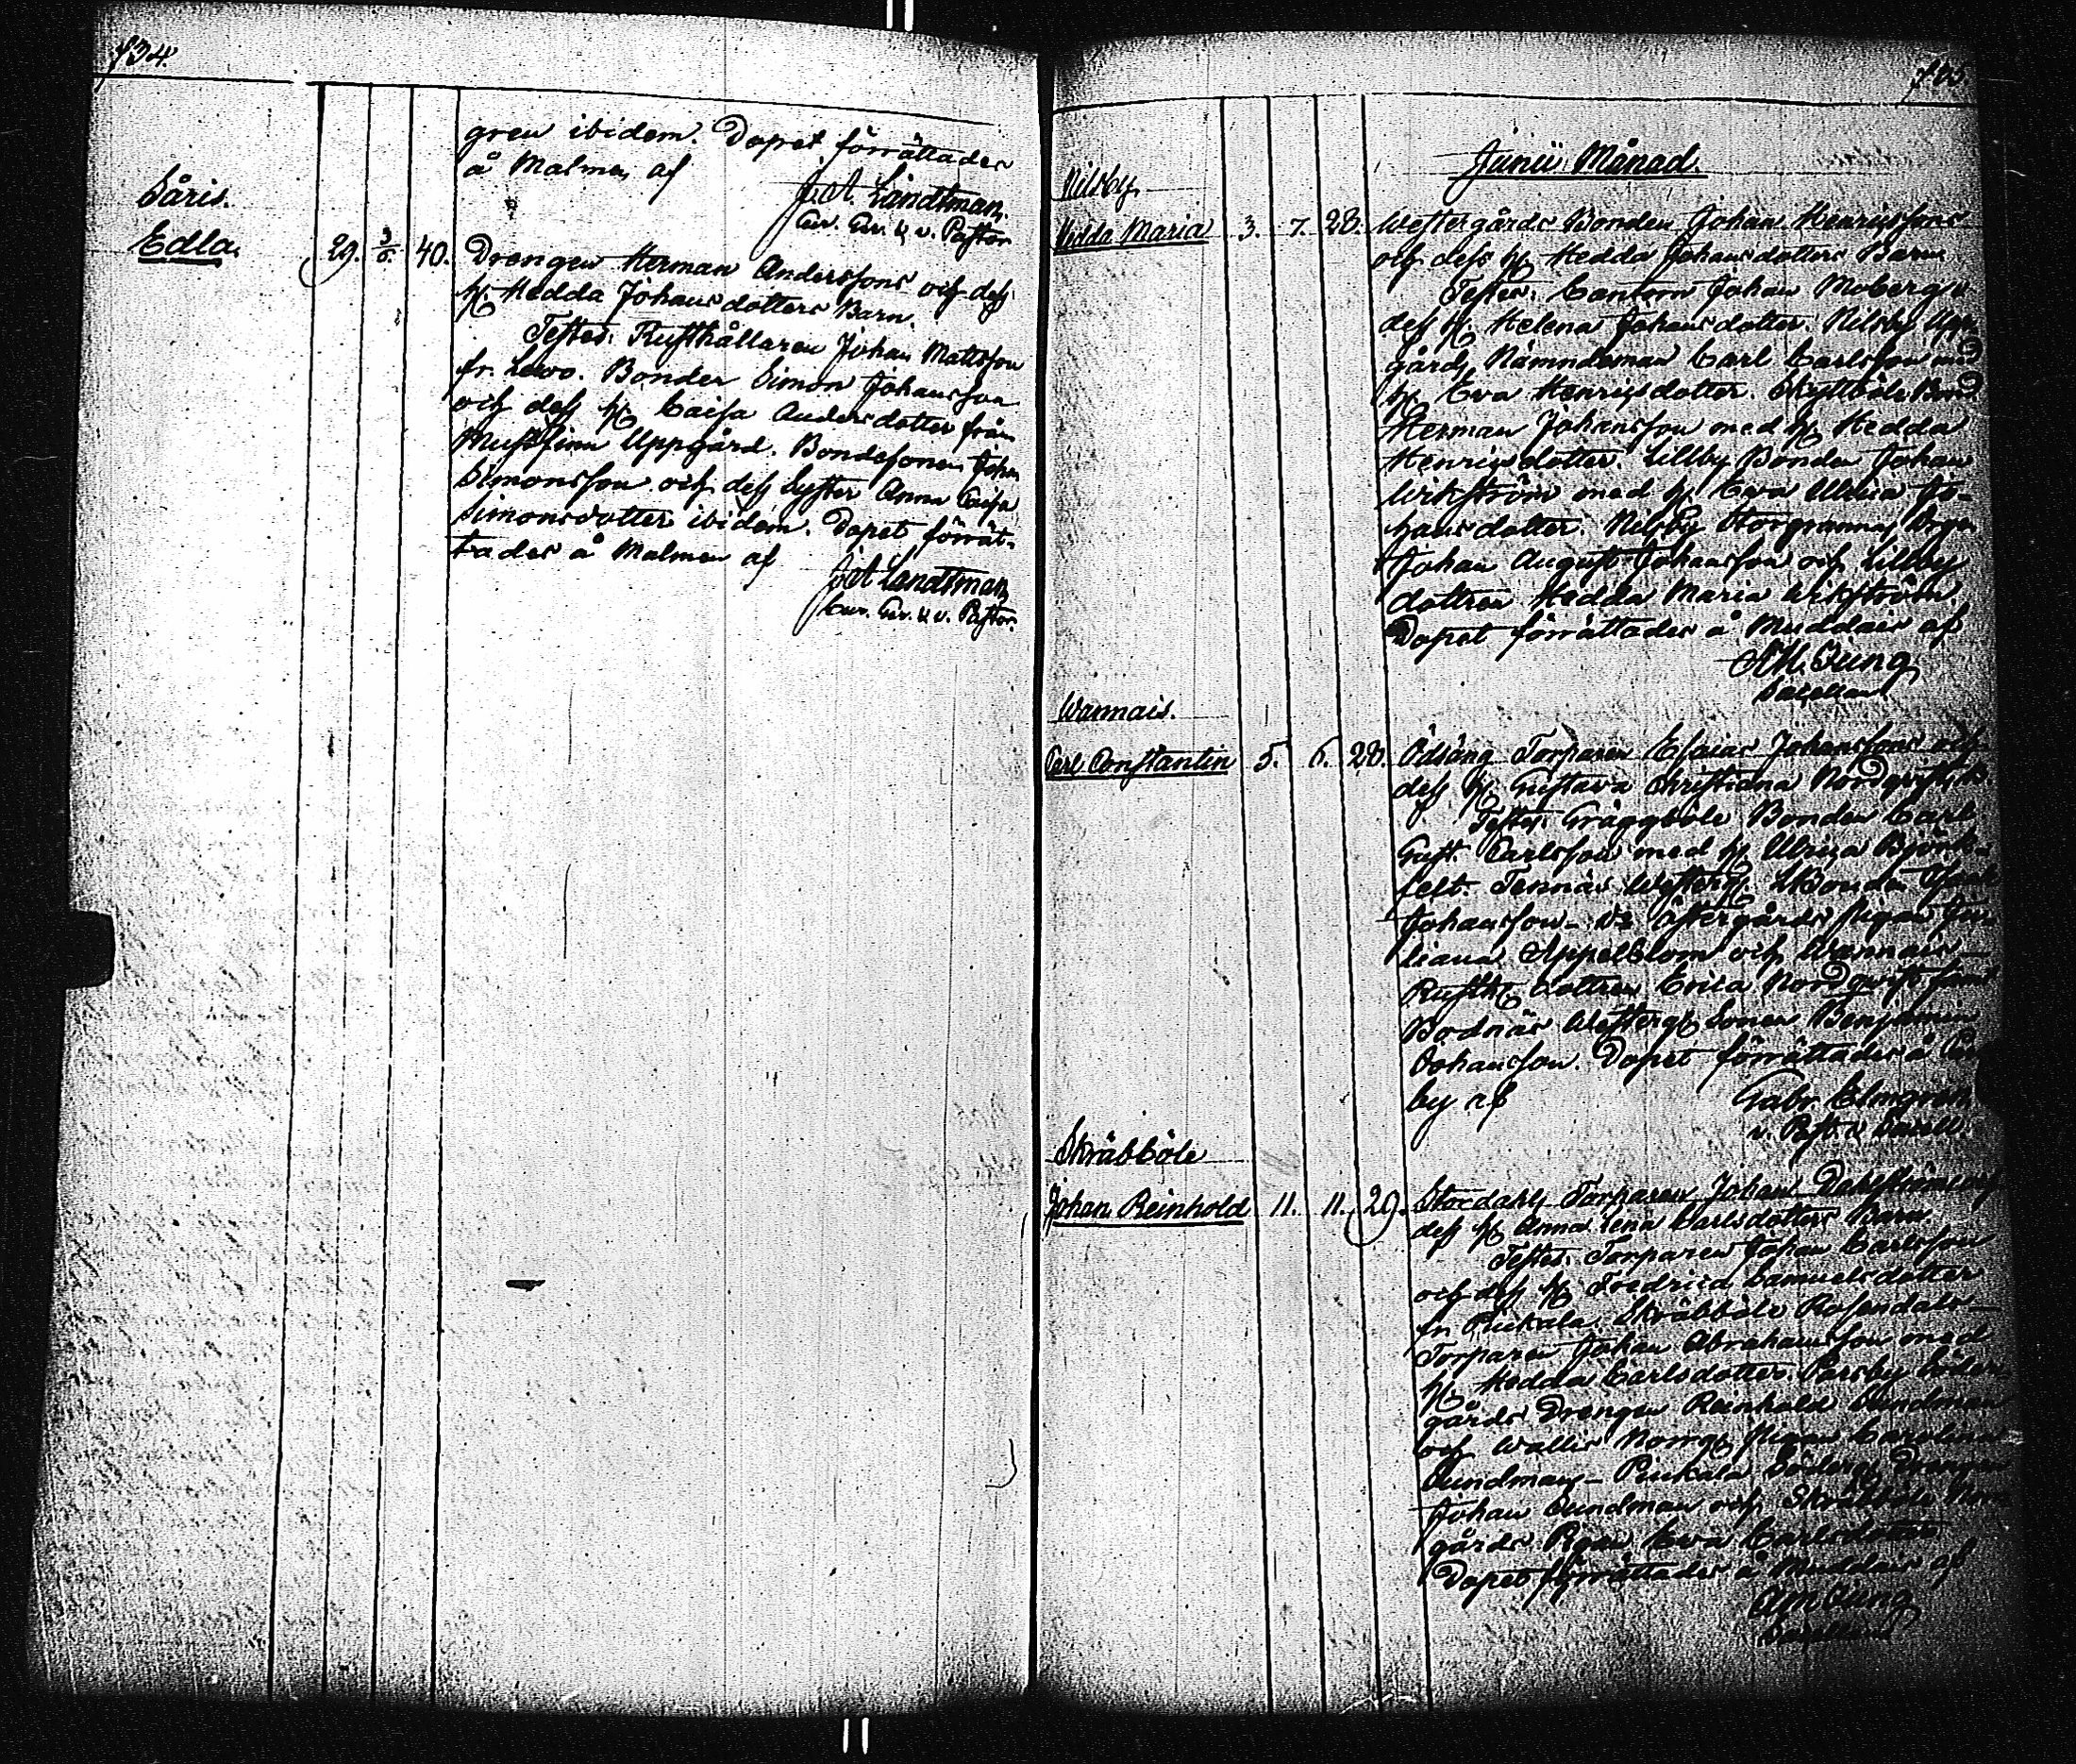 734
gren ibidem. Dopet förrättades
å Malmen af
J. A. Landtman.
Cur. Gr. & v. Pastor
Såris.
Edla. 29. 3/6 40. Drengen Herman Anderssons och dess
h. Hedda Johansdotters Barn.
Testes: Rusthållaren Johan Mattsson
fr. Lewo. Bonden Simon Johansson
och dess h. Caisa Andersdotter från
Mustfinn Uppgård. Bondesonen Johan
Simonsson och dess Syster Anna Caisa
Simonsdotter ibidem. Dopet förrät-
tades å Malmen af
J. A. Landtman
Cur. Gr. & v. Pastor.
Junii Månad.
Nilsby.
Hedda Maria 3. 7. 28. Westergårds Bonden Johan Henricssons
och dess h. Hedda Johansdotters Barn
Testes: Cantorn Johan Moberg o
dess h. Helena Johansdotter. Nilsby Upp-
gårds Nämndeman Carl Carlsson med
h. Ewa Henricsdotter. Skyttböle Bond
Herman Johansson med h. Hedda
Henricsdotter. Lillby Bonden Johan
Wikström med h. Ewa Ulrica Jo-
hansdotter. Nilsby Drgn
Johan August Johansson och Lillby
dottren Hedda Maria Wikström.
Dopet förrättades å Muddais af
A M. Ljung
Sacellan
Wannais.
Carl Constantin 5. 6. 28. Ödsäng Torparen Esaias Johanssons och
dess h. Gustava Christiana Nordqvists B.
Testes: Gräggböle Bonden Carl
Gust. Carlsson med h. Ulrica Björk-
felt. Tennäs Westerg. Bonden
Johansson - Östergårds Pigan Ju
liana Appelblom och Wannais
Rusth. dottren Erica Nordqvist samt
Bodnäs Westerg. Sonen Benjamin
Johansson. Dopet förrättades å
by af
Gabr. Elmgren
v. Past. & Sacell.
Skräbböle
Johan Reinhold 11. 11. 29. Stordahls Torparen Johan Dahlströms och
dess h. Anna Lena Carlsdotters Barn.
Testes: Torparen Johan Carlsson
och dess h. Fredrica Samuelsdotter
fr. Piukala. Skräbböle Rosendals
Torparen Johan Abrahamsson med
h. Hedda Carlsdotter. Parsby Söder
gårds Drengen Reinhold Sundman
och Wallis Norrg. Pigan Carolina
Sundman - Piukala Söderg. Drengen
Johan Sundman och Skräbböle Norr
gårds Pigan Ewa Carlsdotter
Dopet förrättades å Muddais af
A M Ljung
Sacellan